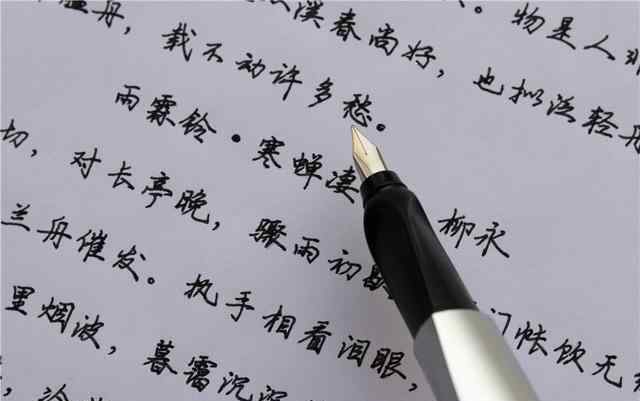 。物是人
溪春尚好，也拟泛轻舟
舟，载不动许多愁。
雨霖铃·寒蝉凄 柳永
切，对长亭晚，骤雨初 门帐饮无
兰舟催发。执手相看泪眼，
里烟波，暮霭沉沉